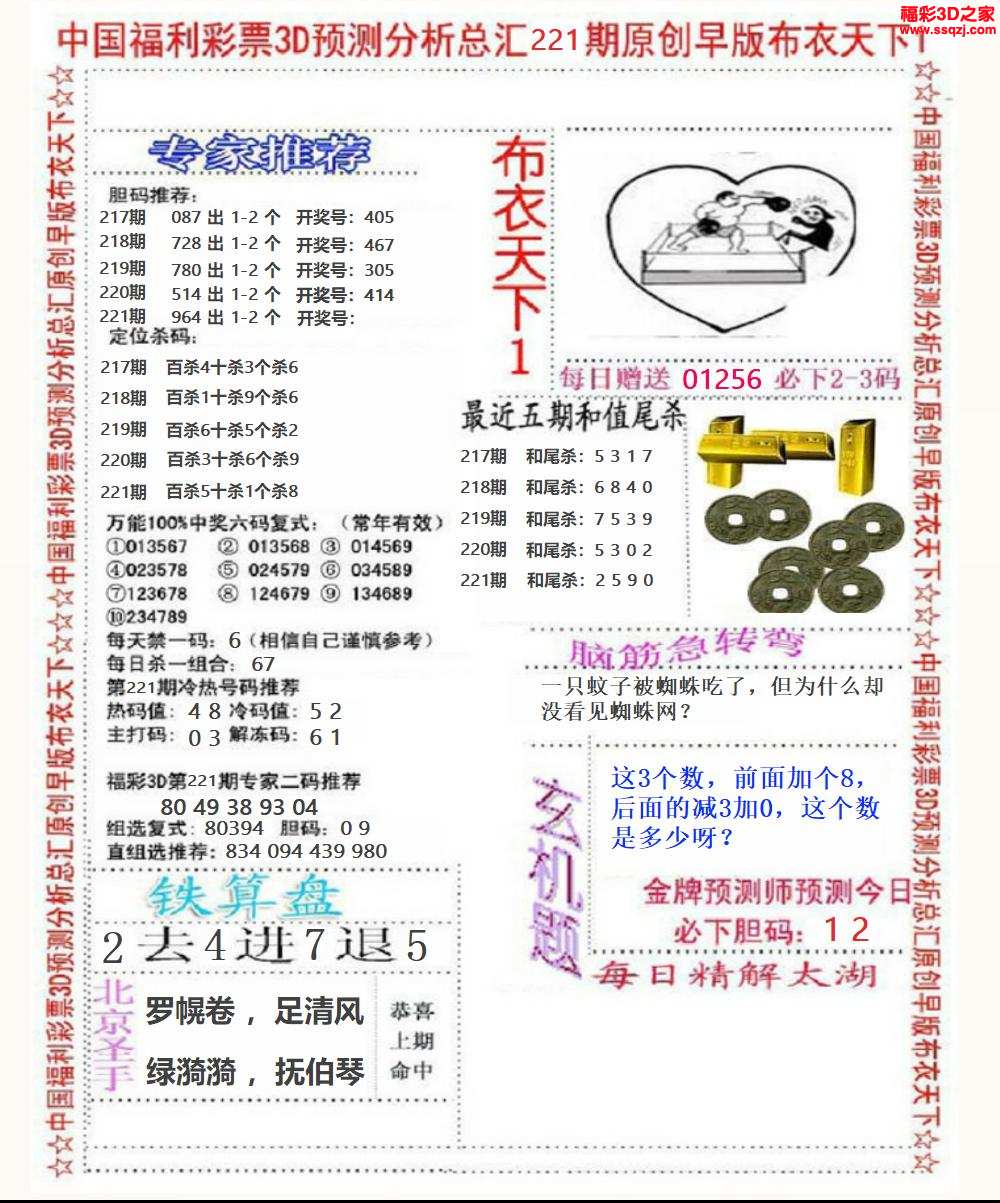 福彩3D之家
www.ssqzj.com
中国福利彩票3D预测分析总汇221期原创早版布衣天下1
☆☆中国福利彩票3D预测分析总汇原创早版布衣天下☆☆中国福利彩票3D预测分析总汇原创早版布衣天下☆☆
专家推荐
胆码推荐：
217期 087 出 1-2 个 开奖号：405
218期 728 出 1-2 个 开奖号：467
219期 780 出 1-2 个 开奖号：305
220期 514 出 1-2 个 开奖号：414
221期 964 出 1-2 个 开奖号：
定位杀码：
217期 百杀4十杀3个杀6
218期 百杀1十杀9个杀6
219期 百杀6十杀5个杀2
220期 百杀3十杀6个杀9
221期 百杀5十杀1个杀8
万能100%中奖六码复式：（常年有效）
①013567 ② 013568 ③ 014569
④023578 ⑤ 024579 ⑥ 034589
⑦123678 ⑧ 124679 ⑨ 134689
⑩234789
每天禁一码：6（相信自己谨慎参考）
每日杀一组合： 67
第221期冷热号码推荐
热码值：4 8 冷码值：5 2
主打码：0 3 解冻码：6 1
福彩3D第221期专家二码推荐
80 49 38 93 04
组选复式：80394 胆码：0 9
直组选推荐：834 094 439 980
铁算盘
2去4进7退5
北京圣手
罗幌卷，足清风
绿漪漪，抚伯琴
恭喜
上期
命中
布衣天下1
每日赠送 01256 必下2-3码
最近五期和值尾杀
217期 和尾杀：5 3 1 7
218期 和尾杀：6 8 4 0
219期 和尾杀：7 5 3 9
220期 和尾杀：5 3 0 2
221期 和尾杀：2 5 9 0
脑筋急转弯
一只蚊子被蜘蛛吃了，但为什么却
没看见蜘蛛网？
玄机题
这3个数，前面加个8，
后面的减3加0，这个数
是多少呀？
金牌预测师预测今日
必下胆码：1 2
每日精解太湖
☆☆中国福利彩票3D预测分析总汇原创早版布衣天下☆☆中国福利彩票3D预测分析总汇原创早版布衣天下☆☆